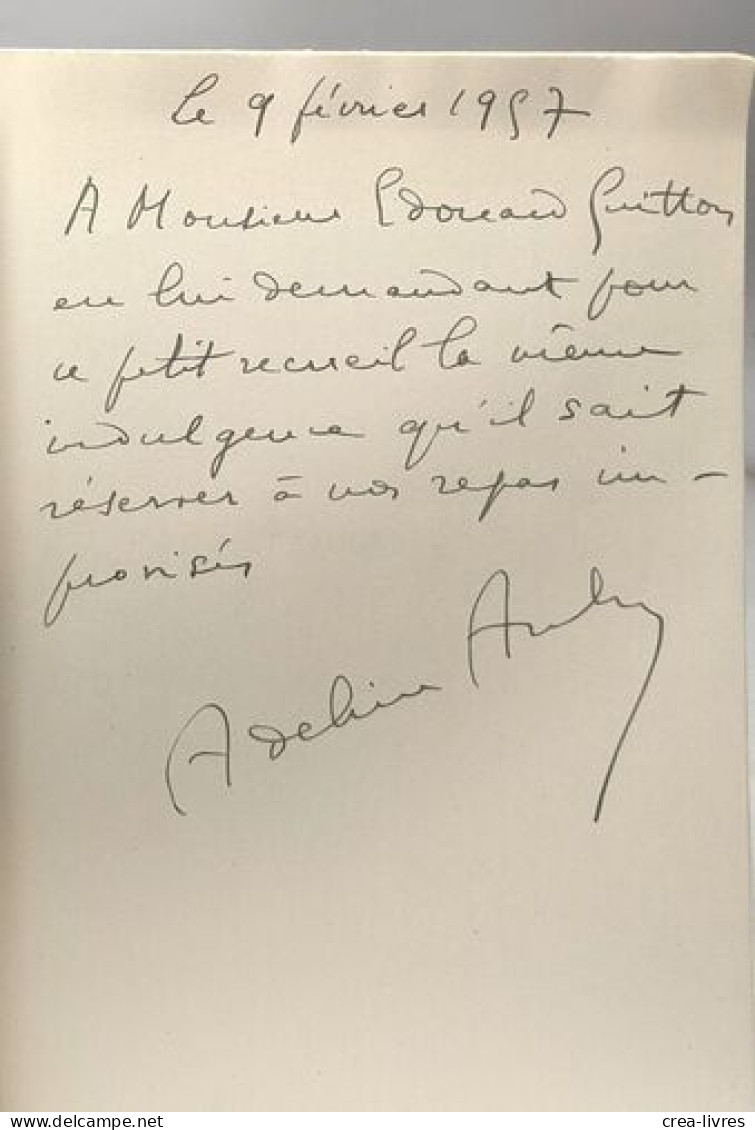 le 9 février 1957
A Monsieur Edouard Guitton
en lui demandant pour
ce petit recueil la même
indulgence qu'il sait
réserver à nos repas im-
provisés
Adeline Aubry
Delcampe.net
crea-livres